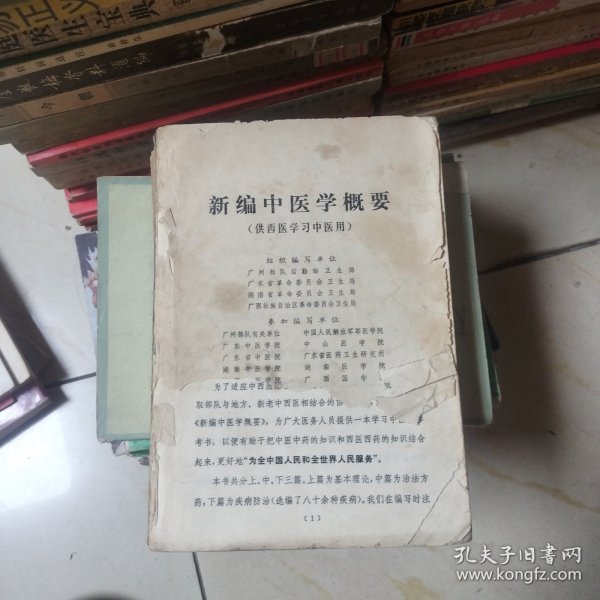 新编中医学概要
（供西医学习中医用）
组织编写单位
广州部队后勤部卫生部
广东省革命委员会卫生局
湖南省革命委员会卫生局
广西壮族自治区革命委员会卫生局
参加编写单位
广州部队有关单位 中国人民解放军军医学院
广东中医学院 中山医学院
广东省中医院 广东省医药卫生研究所
湖南中医学院 湖南医学院
医学院 广西医学院
为了适应中西医
取部队与地方、新老中西医相结合的
《新编中医学概要》，为广大医务人员提供一本学习中
考书，以便有助于把中医中药的知识和西医西药的知识结合
起来，更好地“为全中国人民和全世界人民服务”。
本书共分上、中、下三篇。上篇为基本理论，中篇为治法方
药，下篇为疾病防治（选编了八十余种疾病）。我们在编写时注
〔1〕
孔夫子旧书网
www.kongfz.com